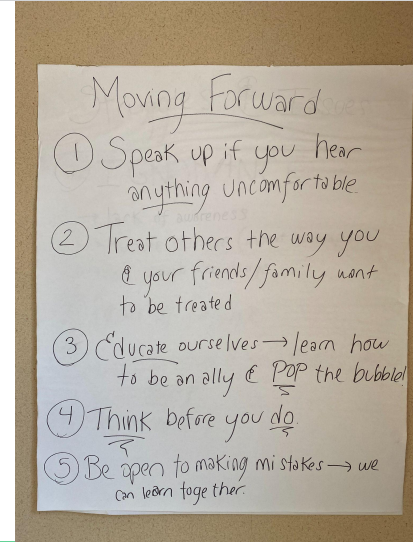 Moving Forward
① Speak up if you hear
anything uncomfortable
② Treat others the way you
& your friends/family want
to be treated
③ Educate ourselves → learn how
to be an ally & POP the bubble!
④ Think before you do.
⑤ Be open to making mistakes → we
can learn together.
lack of awareness